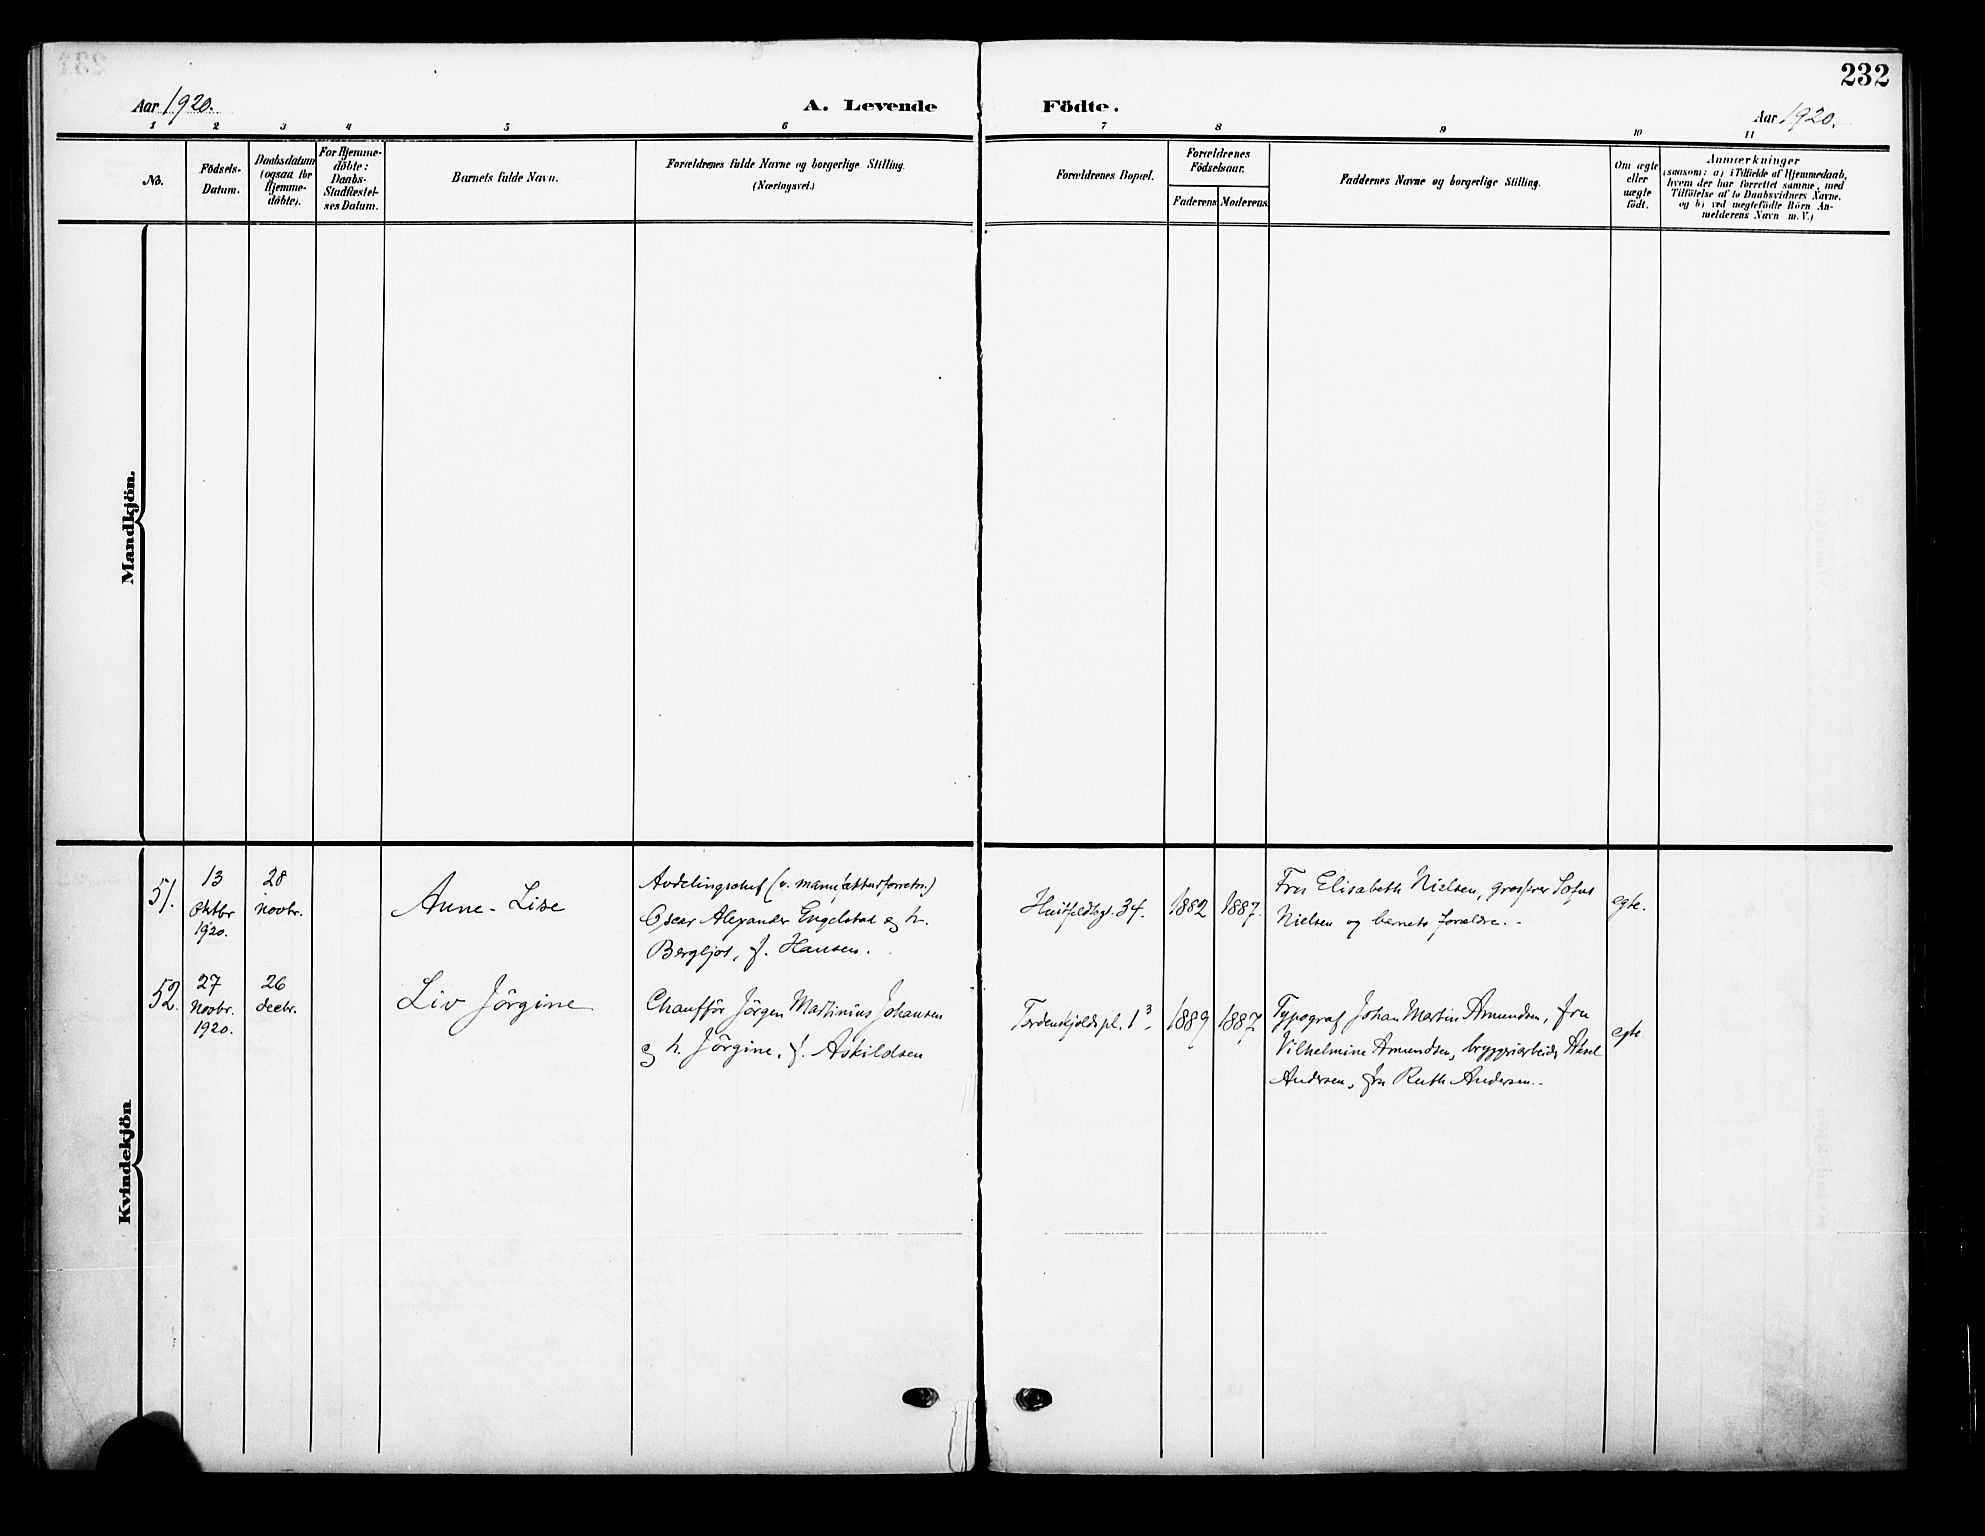 232
Aar 1920.
A. Levende Födte.
Aar 1920.
1 2 3 4 5 6 7 8 9 10 11
No.
Födsels-
Datum.
Daabsdatum
(ogsaa for
Hjemme-
döbte).
For Hjemme-
döbte:
Daabs-
Stadfæstel-
ses Datum.
Barnets fulde Navn.
Forældrenes fulde Navne og borgerlige Stilling.
(Næringsvei.)
Forældrenes Bopæl.
Forældrenes
Födselsaar.
Faderens
Moderens.
Faddernes Navne og borgerlige Stilling.
Om ægte
eller
uægte
födt.
Anmærkninger
(saasom: a) i Tilfælde af Hjemmedaab,
hvem der har forrettet samme, med
Tilföielse af to Daabsvidners Navne.
og b) ved uægtefödte Börn An-
melderens Navn m. V.)
Mandkjön.
Kvindekjön
51.
13
Oktbr
1920.
28
novbr.
Anne-Lise
Avdelingschef (v. manufakturforretn.)
Oscar Alexander Engelstad og h.
Bergljot, f. Hansen.
Huitfeldtsgt. 34.
1882
1887.
Fru Elisabeth Nielsen, grosserer Sofus
Nielsen og barnets forældre.
egte.
52.
27
Novbr.
1920.
26
decbr.
Liv Jörgine
Chaufför Jörgen Martinius Johansen
og h. Jörgine, f. Askildsen
Tordenskjolds pl. 1 3
1889
1887
Typograf Johan Martin Amundsen, fru
Vilhelmine Amundsen, bryggeriarbeider Aksel
Andersen, fru Ruth Andersen.
egte.